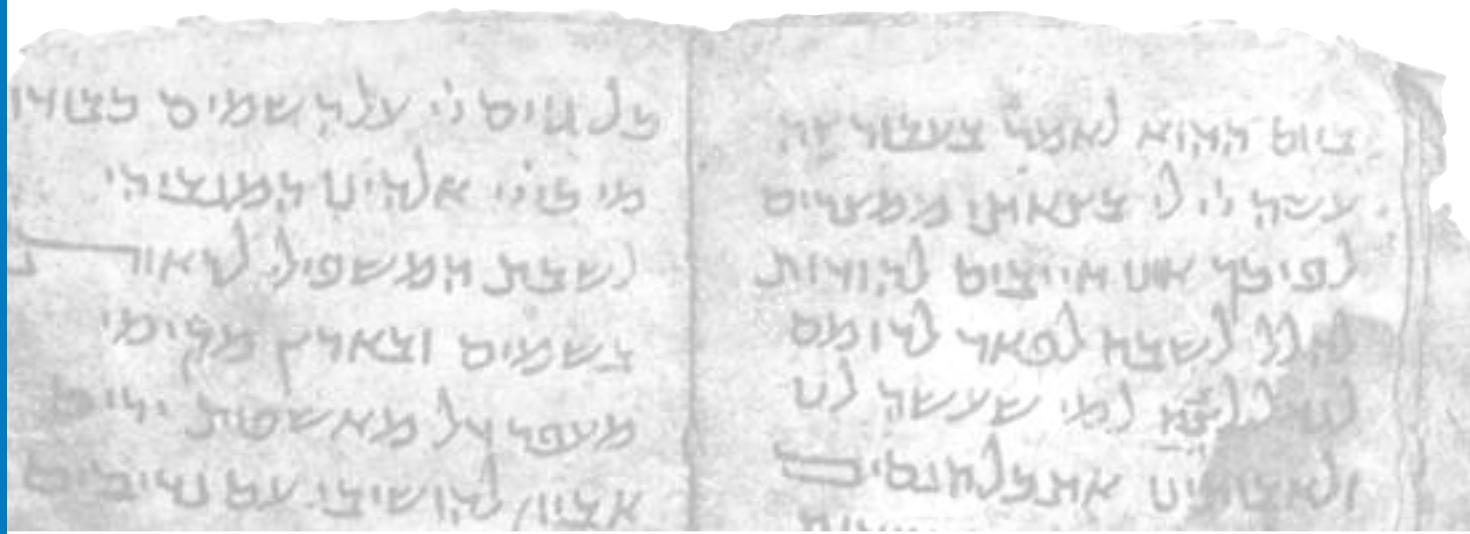 ביום ההוא לאמר בעבור זה
עשה יי לי בצאתי ממצרים
לפיכך אנו חייבים להודות
להלל לשבח לפאר לרומם
למי שעשה לנו
ולאבותינו את כל הנסים
כל גוים יי על השמים כבודו
מי כיי אלהינו המגביהי
לשבת המשפילי לראות
בשמים ובארץ מקימי
מעפר דל מאשפות ירים
אביון להושיבי עם נדיבים